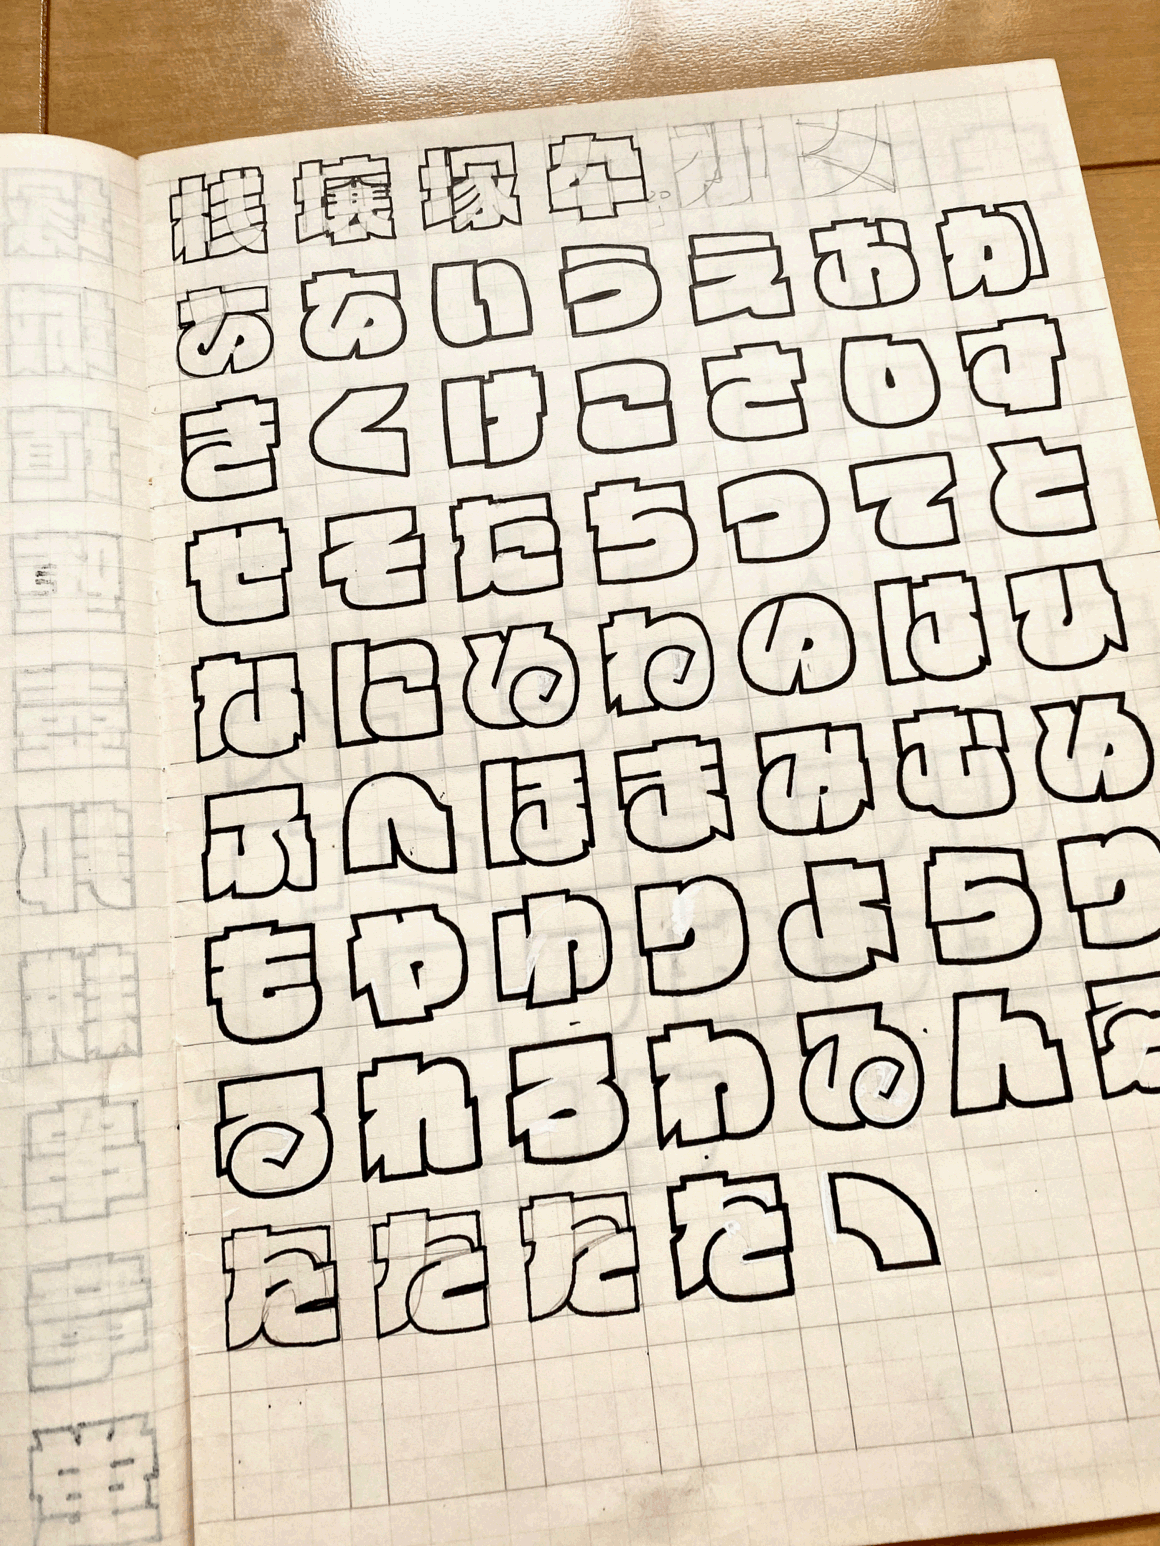 桟壌塚
ああいうえおか
きくけこさしす
せそたちつてと
なにぬねのはひ
ふへほまみむめ
もやゆりよらり
るれろわゐん
たたたた